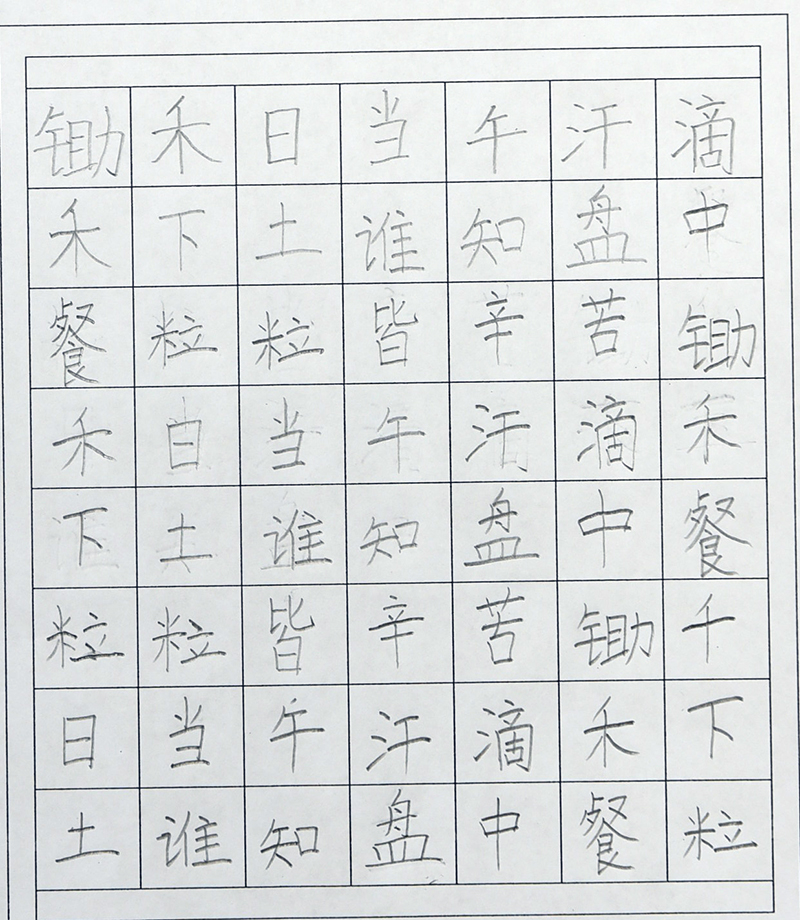 锄禾日当午汗滴
禾下土谁知盘中
餐粒粒皆辛苦锄
禾日当午汗滴禾
下土谁知盘中餐
粒粒皆辛苦锄千
日当午汗滴禾下
土谁知盘中餐粒